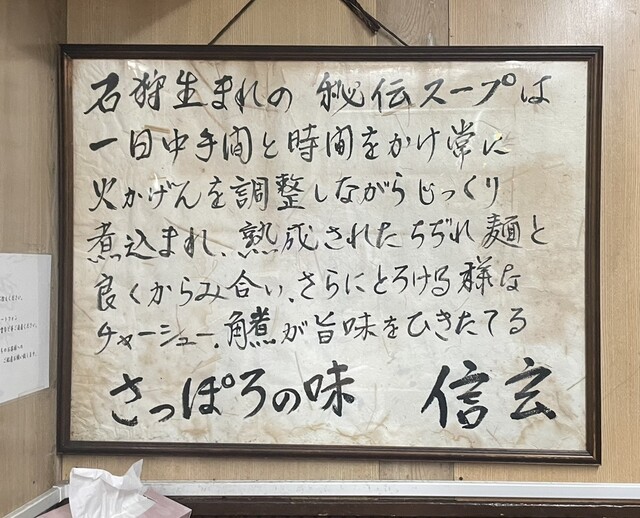 石狩生まれの 秘伝スープは
一日中手間と時間をかけ常に
火かげんを調整しながらじっくり
煮込まれ、熟成されたちぢれ麺と
良くからみ合い、さらにとろける様な
チャーシュー、角煮が旨味をひきたてる
さっぽろの味 信玄